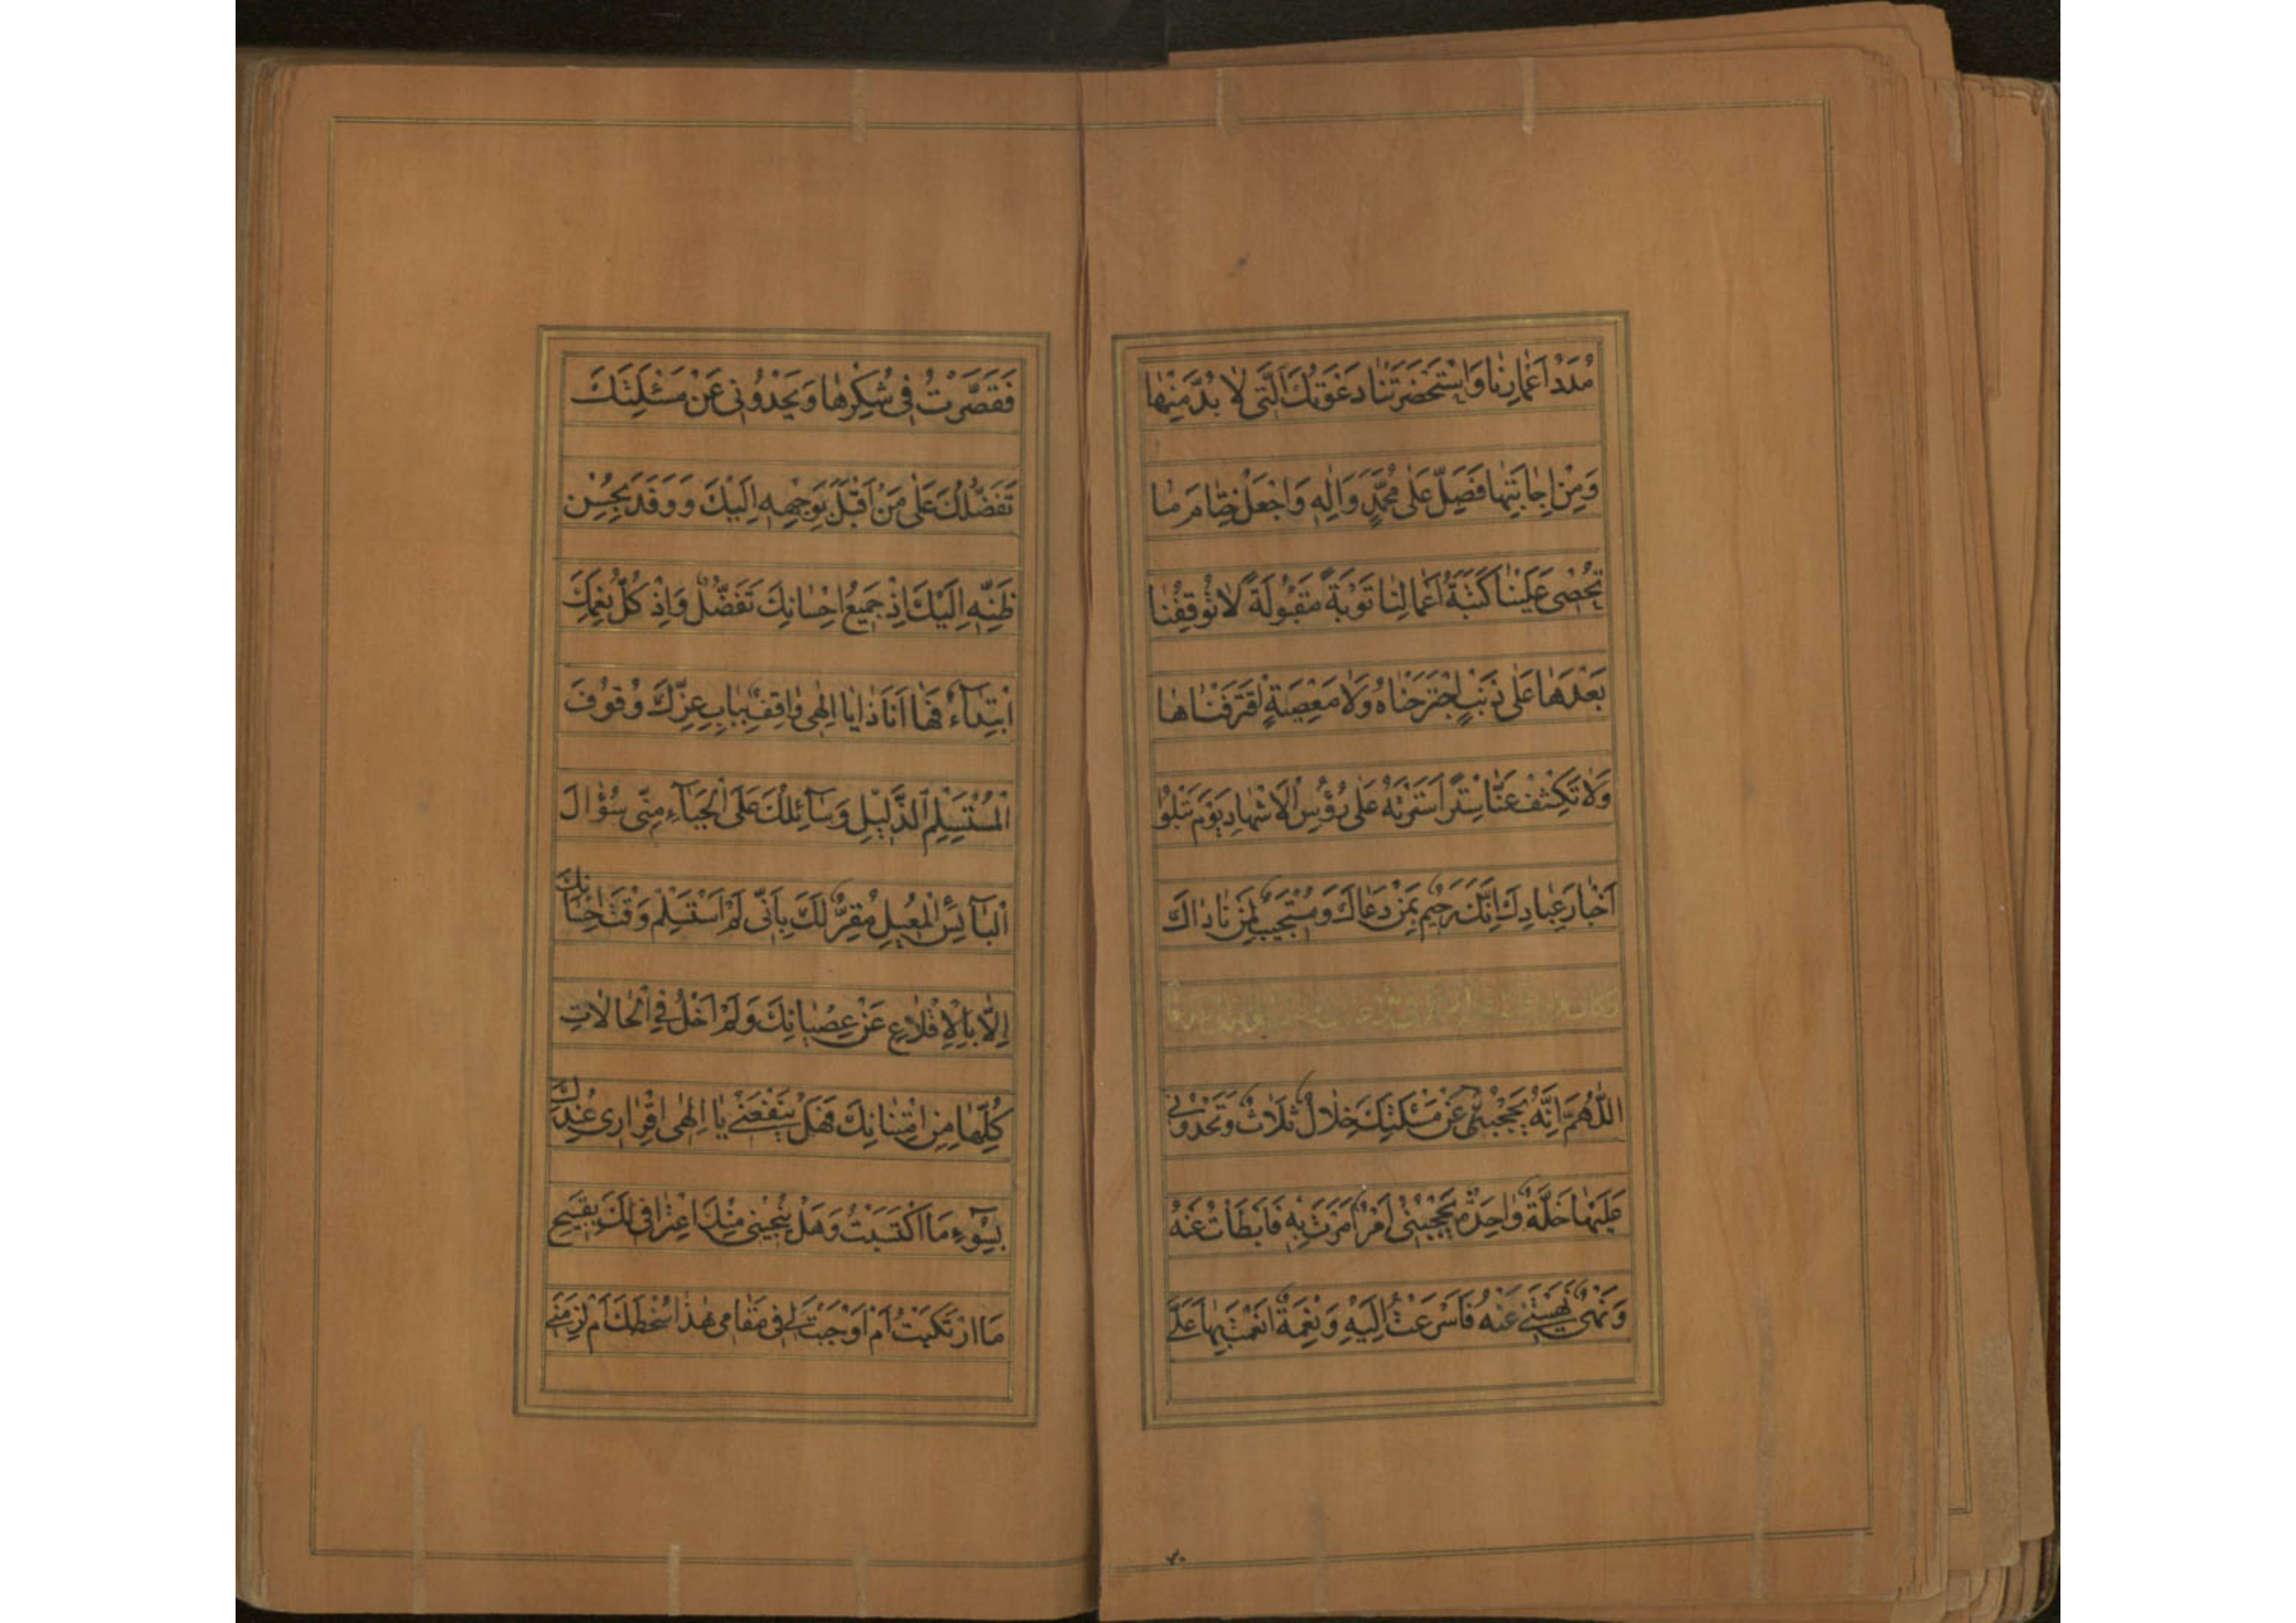 مُدَدُ اَعْمَارِنَا وَاسْتَحْضَرَتْنَا دَعْوَتُكَ الَّتِی لَا بُدَّ مِنْهَا
وَمِنْ اِجَابَتِهَا فَصَلِّ عَلٰی مُحَمَّدٍ وَاٰلِهِ وَاجْعَلْ خِتَامَ مَا
تُحْصِی عَلَیْنَا کَتَبَةُ اَعْمَالِنَا تَوْبَةً مَقْبُولَةً لَا تُوقِفُنَا
بَعْدَهَا عَلٰی ذَنْبٍ اجْتَرَحْنَاهُ وَلَا مَعْصِیَةٍ اقْتَرَفْنَاهَا
وَلَا تَکْشِفْ عَنَّا سِتْرًا سَتَرْتَهُ عَلٰی رُؤُسِ الْاَشْهَادِ یَوْمَ تَبْلُوا
اَخْبَارَ عِبَادِكَ اِنَّكَ رَحِیمٌ بِمَنْ دَعَاكَ وَمُسْتَجِیبٌ لِمَنْ نَادَاكَ
وکان من
اَللّٰهُمَّ اِنَّهُ یَحْجُبُنِی عَنْ مَسْئَلَتِكَ خِلَالٌ ثَلَاثٌ وَتَحْدُونِی
عَلَیْهَا خَلَّةٌ وَاحِدَةٌ یَحْجُبُنِی اَمْرٌ اَمَرْتَ بِهِ فَاَبْطَأْتُ عَنْهُ
وَنَهْیٌ نَهَیْتَنِی عَنْهُ فَاَسْرَعْتُ اِلَیْهِ وَنِعْمَةٌ اَنْعَمْتَ بِهَا عَلَیَّ
۳۰
فَقَصَّرْتُ فِی شُکْرِهَا وَیَحْدُونِی عَنْ مَسْئَلَتِكَ
تَفَضُّلُكَ عَلٰی مَنْ اَقْبَلَ بِوَجْهِهِ اِلَیْكَ وَوَفَدَ بِحُسْنِ
ظَنِّهِ اِلَیْكَ اِذْ جَمِیعُ اِحْسَانِكَ تَفَضُّلٌ وَاِذْ کُلُّ نِعَمِكَ
ابْتِدَآءٌ فَهَا اَنَا ذَا یَا اِلٰهِی وَاقِفٌ بِبَابِ عِزِّكَ وُقُوفَ
الْمُسْتَسْلِمِ الذَّلِیلِ وَسَآئِلُكَ عَلَی الْحَیَآءِ مِنِّی سُؤَالَ
الْبَآئِسِ الْمُعِیلِ مُقِرٌّ لَكَ بِاَنِّی لَمْ اَسْتَسْلِمْ وَقْتَ اِحْسَانِكَ
اِلَّا بِالْاِقْلَاعِ عَنْ عِصْیَانِكَ وَلَمْ اَخْلُ فِی الْحَالَاتِ
کُلِّهَا مِنِ امْتِنَانِكَ فَهَلْ یَنْفَعُنِی یَا اِلٰهِی اِقْرَارِی عِنْدَكَ
بِسُوٓءِ مَا اکْتَسَبْتُ وَهَلْ یُنْجِینِی مِنْكَ اعْتِرَافِی لَكَ بِقَبِیحِ
مَا ارْتَکَبْتُ اَمْ اَوْجَبْتَ لِی فِی مَقَامِی هٰذَا سُخْطَكَ اَمْ لَزِمَنِی